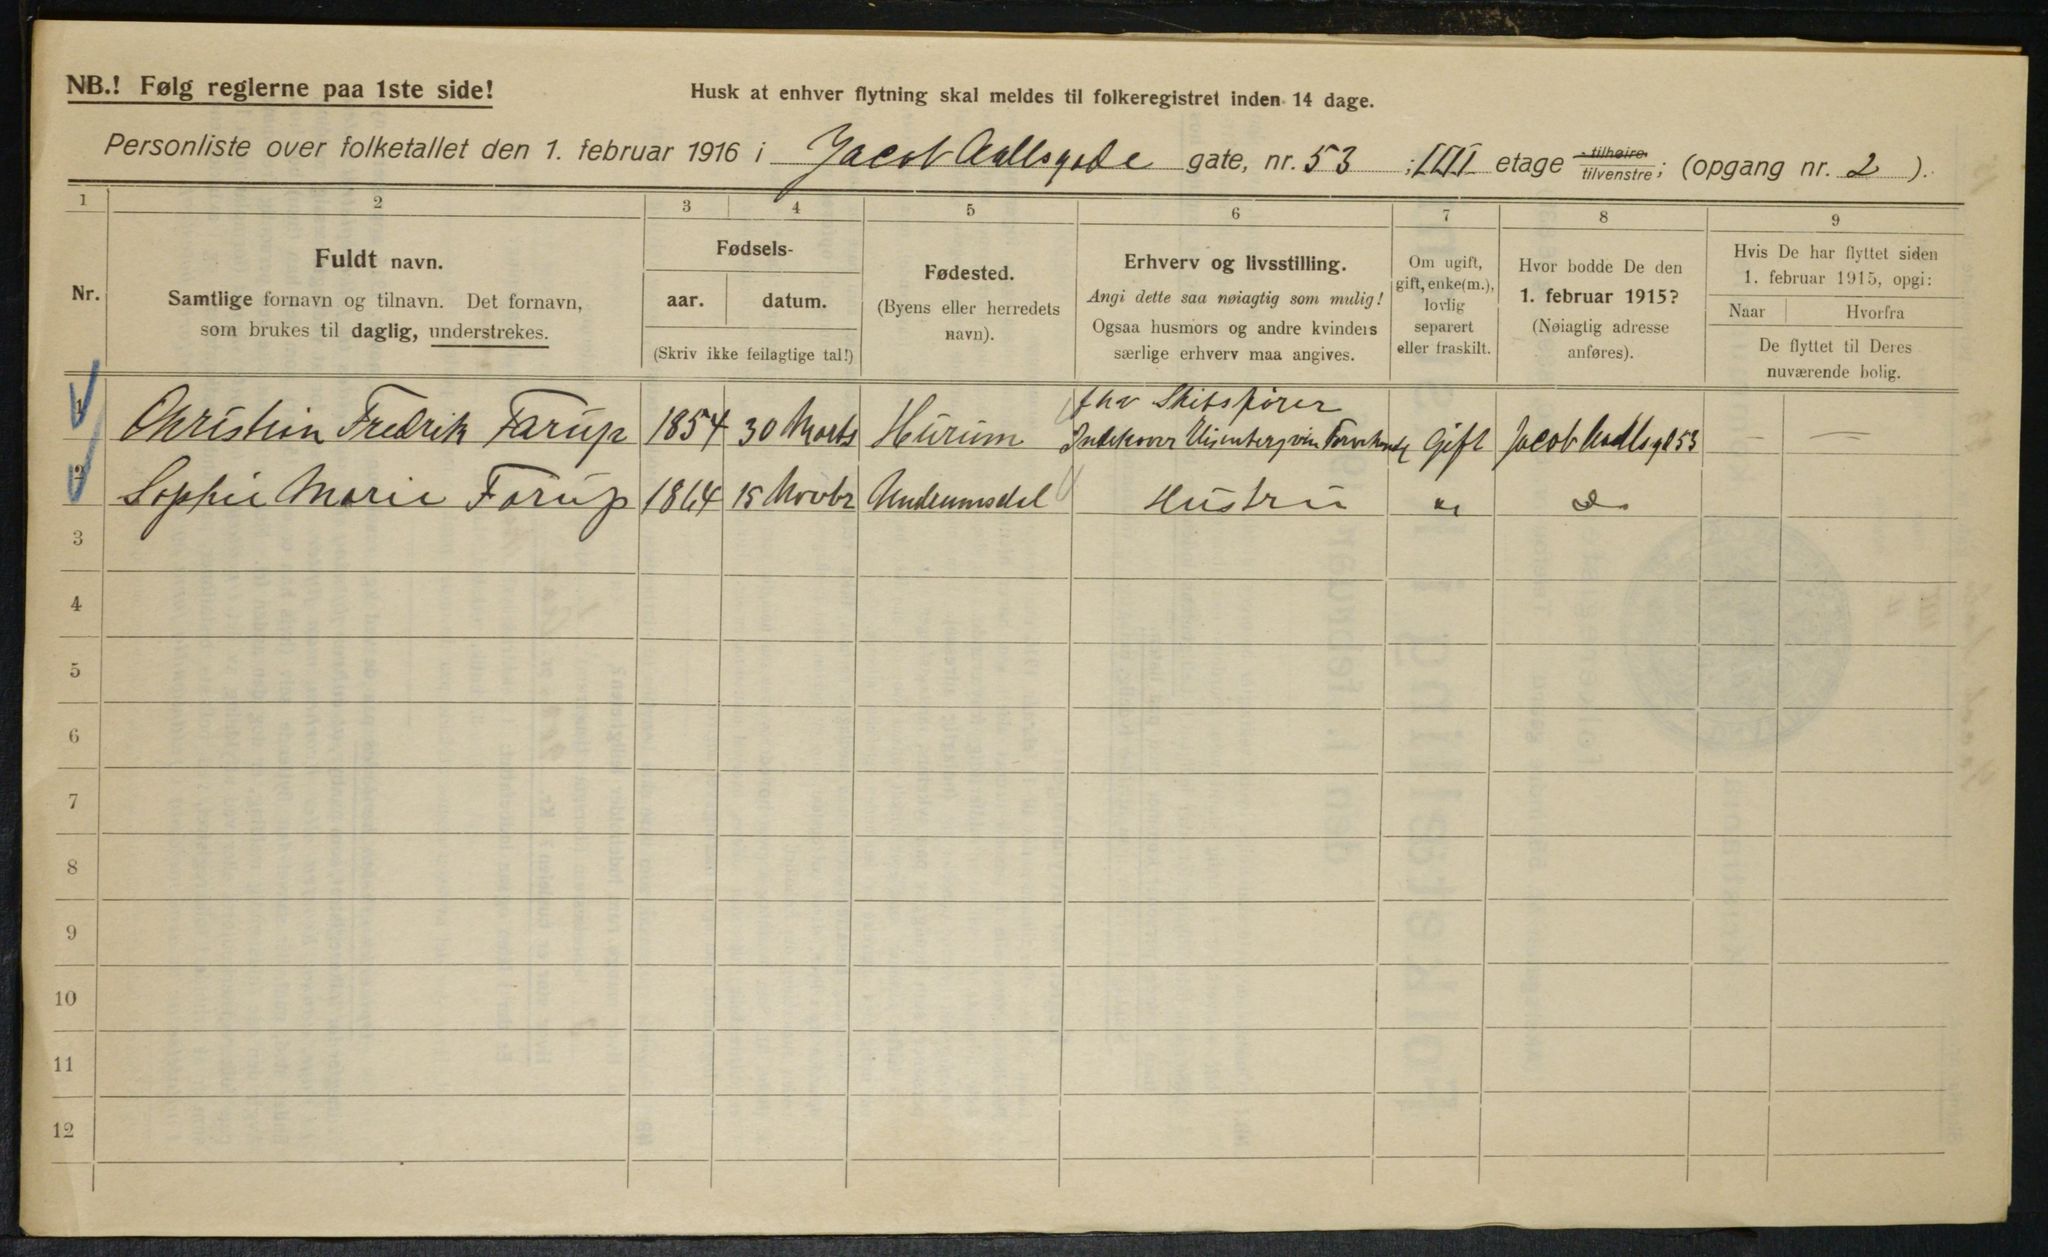 NB.! Følg reglerne paa 1ste side!
Husk at enhver flytning skal meldes til folkeregistret inden 14 dage.
Personliste over folketallet den 1. februar 1916 i Jacob Aallsgade gate, nr. 53 ; III etage tilhøire tilvenstre; (opgang nr. 2 ).
1 2 3 4 5 6 7 8 9
Nr.
Fuldt navn.
Samtlige fornavn og tilnavn. Det fornavn,
som brukes til daglig, understrekes.
Fødsels-
aar. datum.
(Skriv ikke feilagtige tal!)
Fødested.
(Byens eller herredets
navn).
Erhverv og livsstilling.
Angi dette saa nøiagtig som mulig!
Ogsaa husmors og andre kvinders
særlige erhverv maa angives.
Om ugift,
gift, enke(m.),
lovlig
separert
eller fraskilt.
Hvor bodde De den
1. februar 1915?
(Nøiagtig adresse
anføres).
Hvis De har flyttet siden
1. februar 1915, opgi:
Naar Hvorfra
De flyttet til Deres
nuværende bolig.
fhv Skibsfører
1 Christian Fredrik Farup 1854 30 Marts Hurum Gift Jacob Aallsgd 53 — —
2 Sophie Marie Farup 1864 15 Novbr Hustru " Do
3
4
5
6
7
8
9
10
11
12